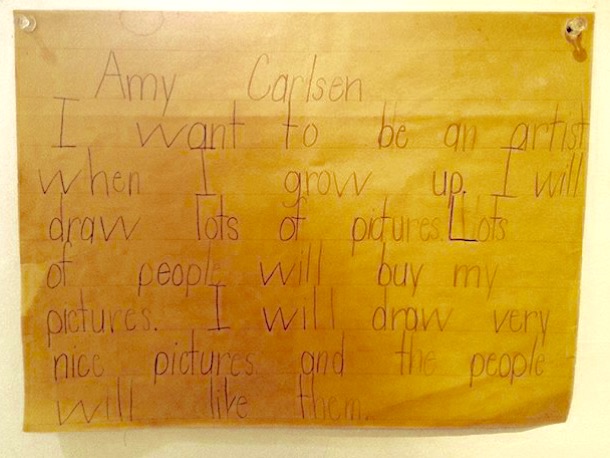 Amy Carlsen
I want to be an artist
when I grow up. I will
draw lots of pictures. Lots
of people will buy my
pictures. I will draw very
nice pictures and the people
will like them.